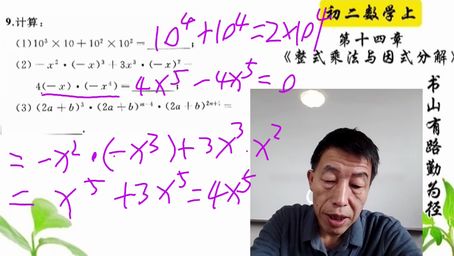 9.计算：
(1)10³×10+10²×10²= 10⁴+10⁴=2×10⁴
(2)-x²·(-x)³+3x³·(-x)²-
4(-x)·(-x⁴)= 4x⁵-4x⁵=0
(3)(2a+b)³·(2a+b)ᵐ⁻⁴·(2a+b)²ⁿ⁺¹=
=-x²·(-x³)+3x³·x²
=x⁵+3x⁵=4x⁵
初二数学上
第十四章
《整式乘法与因式分解》
书山有路勤为径